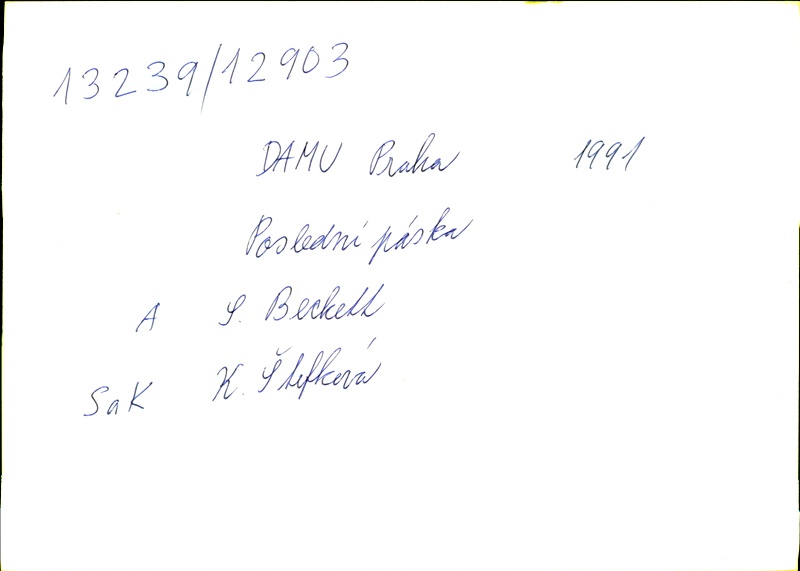 13239/12903
DAMU Praha 1991
Poslední páska
A S. Beckett
SaK K. Štefková